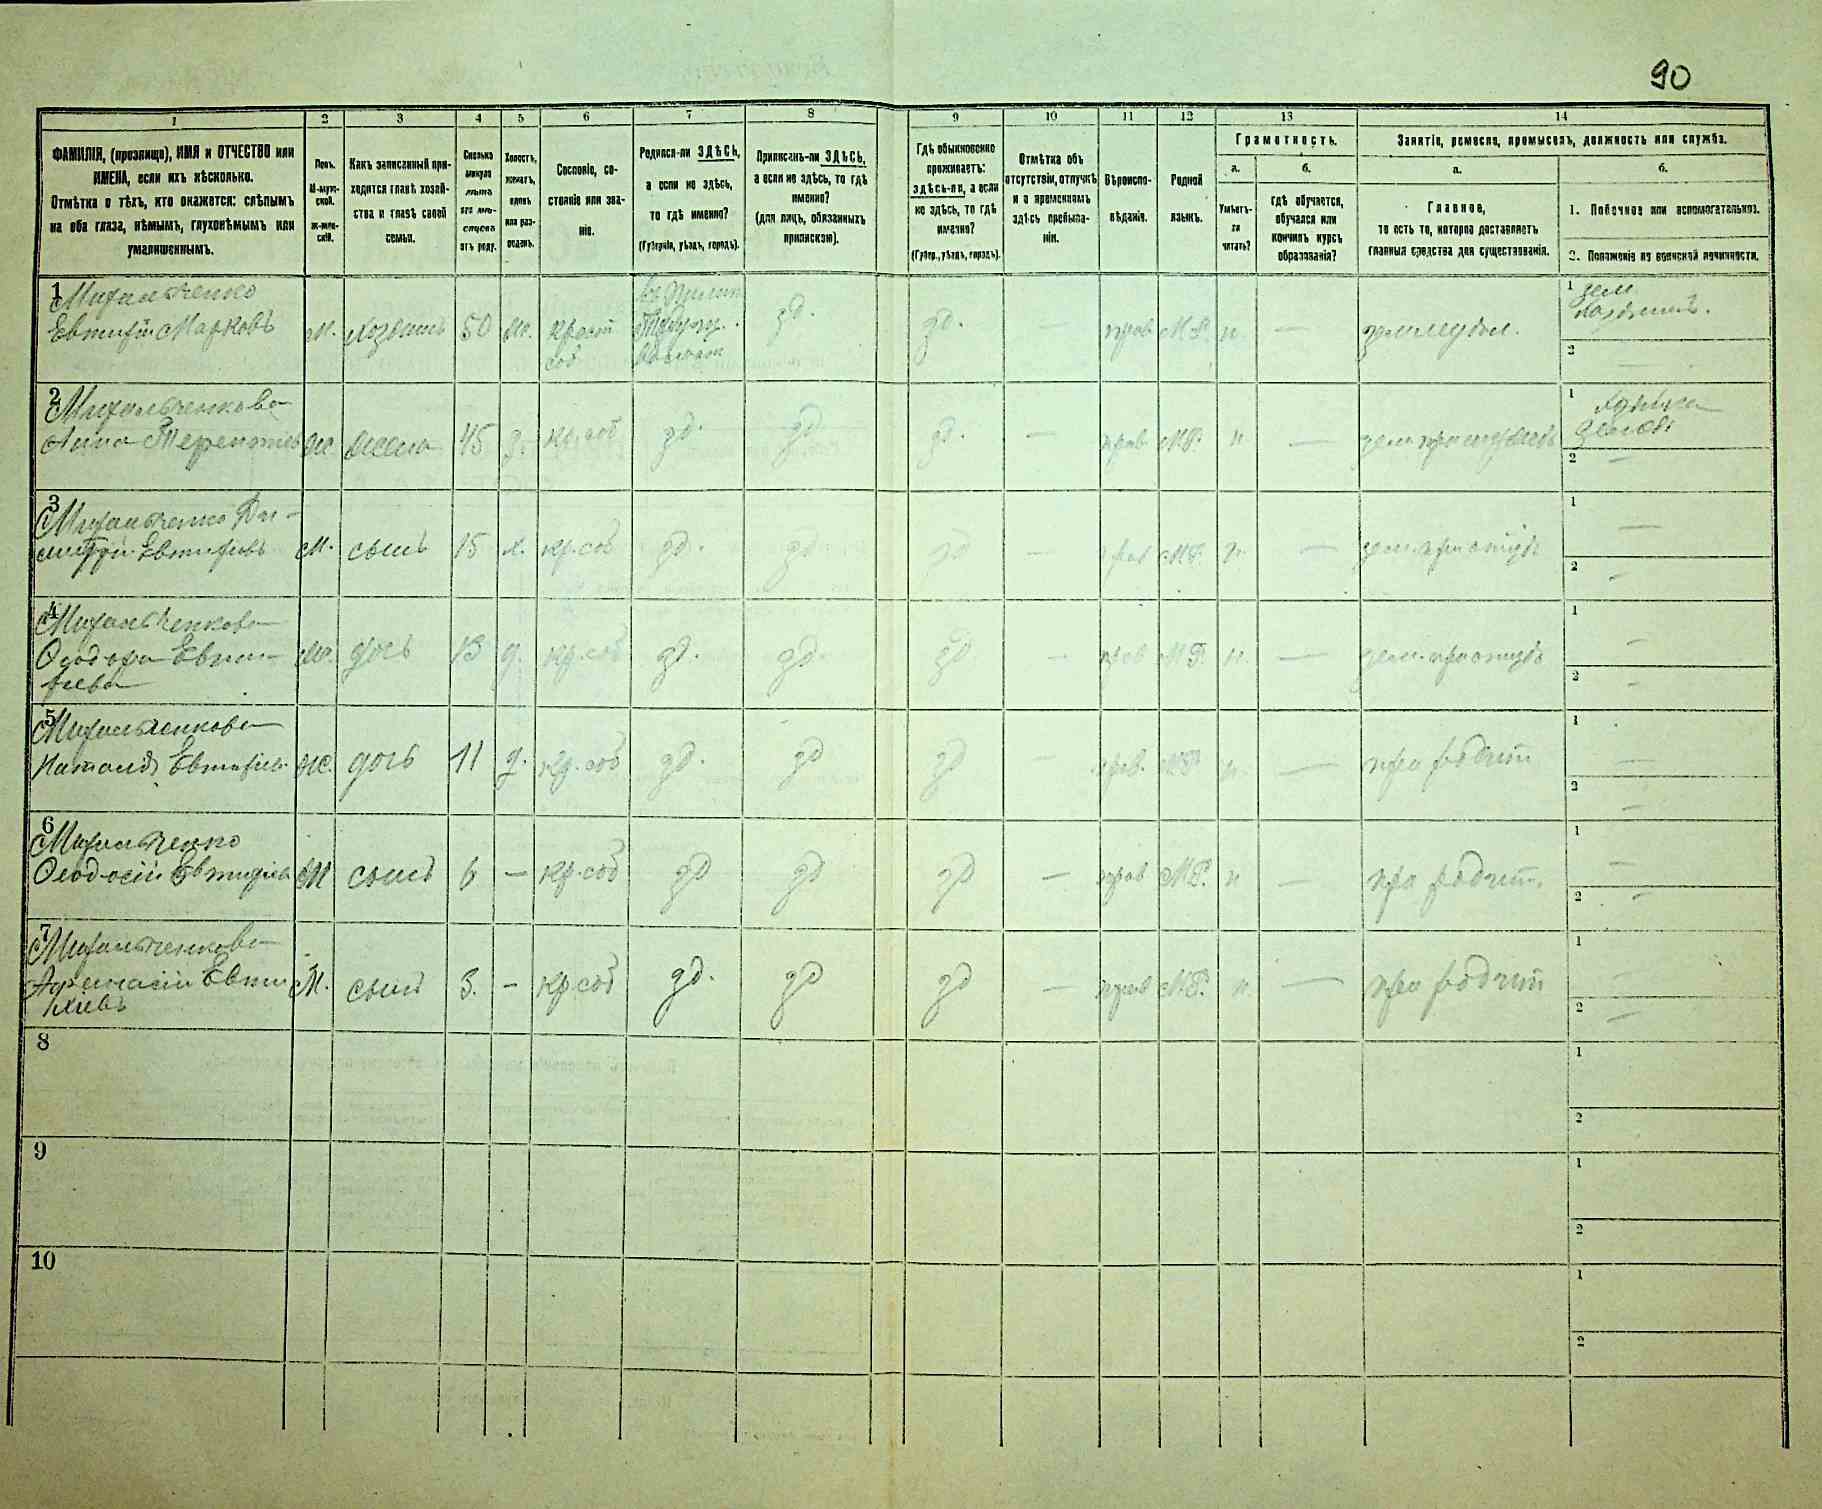 90
1 2 3 4 5 6 7 8 9 10 11 12 13 14
ФАМИЛІЯ, (прозвище), ИМЯ и ОТЧЕСТВО или
ИМЕНА, если ихъ нѣсколько.
Отмѣтка о тѣхъ, кто окажется: слѣпымъ
на оба глаза, нѣмымъ, глухонѣмымъ или
умалишеннымъ.
Полъ.
М-муж-
ской.
Ж-жен-
скій.
Какъ записанный при-
ходится главѣ хозяй-
ства и главѣ своей
семьи.
Сколько
минуло
лѣтъ
или мѣ-
сяцевъ
отъ роду.
Холостъ,
женатъ,
вдовъ
или раз-
веденъ.
Сословіе, со-
стояніе или зва-
ніе.
Родился-ли ЗДѢСЬ,
а если не здѣсь,
то гдѣ именно?
(Губернія, уѣздъ, городъ).
Приписанъ-ли ЗДѢСЬ,
а если не здѣсь, то гдѣ
именно?
(для лицъ, обязанныхъ
припискою).
Гдѣ обыкновенно
проживаетъ:
здѣсь-ли, а если
не здѣсь, то гдѣ
именно?
(Губер., уѣздъ, городъ).
Отмѣтка объ
отсутствіи, отлучкѣ
и о временномъ
здѣсь пребыва-
ніи.
Вѣроиспо-
вѣданіе.
Родной
языкъ.
Грамотность.
а.
Умѣетъ-
ли
читать?
б.
гдѣ обучается,
обучался или
кончилъ курсъ
образованія?
Занятіе, ремесло, промыселъ, должность или служба.
а.
Главное,
то есть то, которое доставляетъ
главныя средства для существованія.
б.
1. Побочное или вспомогательное.
2. Положеніе по воинской повинности.
1
Михальченко
Евтихій Марковъ М. хозяинъ 50 ж. зд. зд. — прав М.Р. н — 1
2
2
Михальченкова
Анна Терентьев ж. жена 45 з. кр. соб зд. зд зд. — прав М.Р. н — 1
2 —
3
Михальченко Ди-
митрій Евтихіевъ М. сынъ 15 х. кр. соб зд. зд. зд — прав М.Р. н. — 1 —
2 —
4
Михальченкова
Ѳеодора Евти-
хіева ж. дочь 13 д. кр. соб зд. зд. зд — прав М.Р. н. — 1 —
2 —
5
Михальченкова
Наталія Евтихіев ж. дочь 11 д. кр. соб зд. зд зд — прав. М.Р. н. — при родит 1 —
2 —
6
Михальченко
Ѳеодосій Евтихіев М сынъ 6 — кр. соб зд зд зд — прав М.Р. н — при родит. 1 —
2 —
7
Михальченкова
Афанасій Евти
хіевъ М. сынъ 3. — кр. соб зд. зд зд — прав М.Р. н. — при родит 1 —
2 —
8 1
2
9 1
2
10 1
2